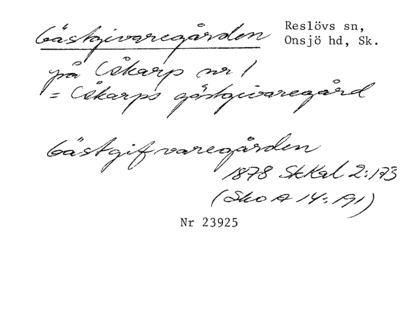 Gästgivaregården
Reslövs sn,
Onsjö hd, Sk.
på Åkarp nr 1
= Åkarps gästgivaregård
Gästgifvaregården
1878 StKal 2:173
(SkoA 14: 191)
Nr 23925